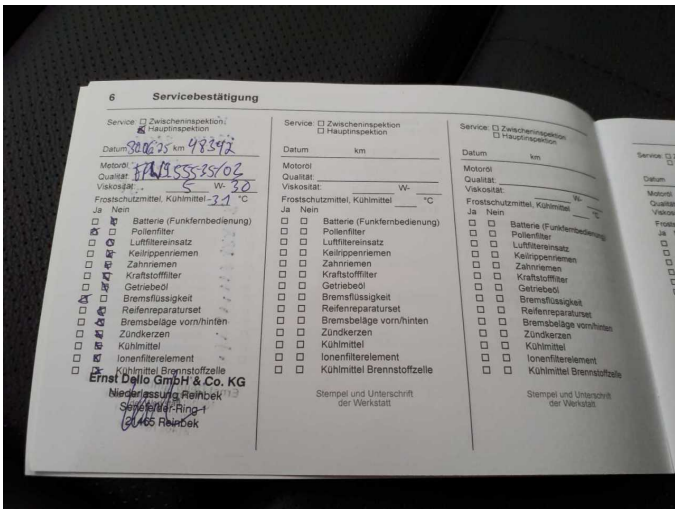 6 Servicebestätigung
Service: ☐ Zwischeninspektion
☒ Hauptinspektion
Datum 30.06.25 km 48342
Motoröl
Qualität:
Viskosität: 5 W- 30
Frostschutzmittel, Kühlmittel -31 °C
Ja Nein
☐ ☒ Batterie (Funkfernbedienung)
☒ ☐ Pollenfilter
☐ ☒ Luftfiltereinsatz
☐ ☒ Keilrippenriemen
☐ ☒ Zahnriemen
☐ ☒ Kraftstofffilter
☐ ☒ Getriebeöl
☒ ☐ Bremsflüssigkeit
☐ ☒ Reifenreparaturset
☐ ☒ Bremsbeläge vorn/hinten
☐ ☒ Zündkerzen
☐ ☒ Kühlmittel
☐ ☒ Ionenfilterelement
☐ ☒ Kühlmittel Brennstoffzelle
Ernst Dello GmbH & Co. KG
Niederlassung Reinbek
Senefelder-Ring 1
21465 Reinbek
Service: ☐ Zwischeninspektion
☐ Hauptinspektion
Datum km
Motoröl
Qualität:
Viskosität: W-
Frostschutzmittel, Kühlmittel °C
Ja Nein
☐ ☐ Batterie (Funkfernbedienung)
☐ ☐ Pollenfilter
☐ ☐ Luftfiltereinsatz
☐ ☐ Keilrippenriemen
☐ ☐ Zahnriemen
☐ ☐ Kraftstofffilter
☐ ☐ Getriebeöl
☐ ☐ Bremsflüssigkeit
☐ ☐ Reifenreparaturset
☐ ☐ Bremsbeläge vorn/hinten
☐ ☐ Zündkerzen
☐ ☐ Kühlmittel
☐ ☐ Ionenfilterelement
☐ ☐ Kühlmittel Brennstoffzelle
Stempel und Unterschrift
der Werkstatt
Service: ☐ Zwischeninspektion
☐ Hauptinspektion
Datum km
Motoröl
Qualität:
Viskosität: W-
Frostschutzmittel, Kühlmittel °C
Ja Nein
☐ ☐ Batterie (Funkfernbedienung)
☐ ☐ Pollenfilter
☐ ☐ Luftfiltereinsatz
☐ ☐ Keilrippenriemen
☐ ☐ Zahnriemen
☐ ☐ Kraftstofffilter
☐ ☐ Getriebeöl
☐ ☐ Bremsflüssigkeit
☐ ☐ Reifenreparaturset
☐ ☐ Bremsbeläge vorn/hinten
☐ ☐ Zündkerzen
☐ ☐ Kühlmittel
☐ ☐ Ionenfilterelement
☐ ☐ Kühlmittel Brennstoffzelle
Stempel und Unterschrift
der Werkstatt
Service:
Datum
Motoröl